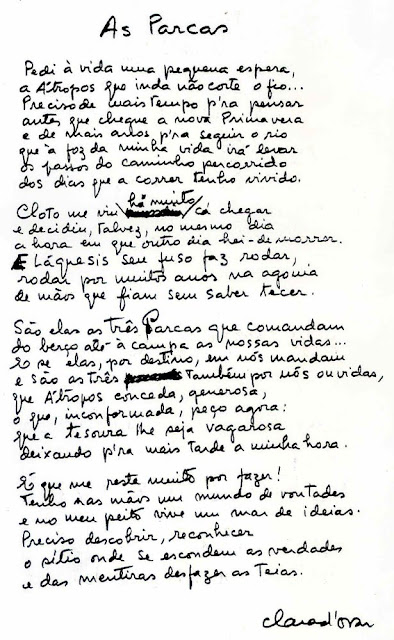 As Parcas
Pedi à vida uma pequena espera,
a Átropos que inda não corte o fio...
Preciso de mais tempo p'ra pensar
antes que chegue a nova Primavera
e de mais anos, p'ra seguir o rio
que à foz da minha vida irá levar
os passos do caminho percorrido
dos dias que a correr tenho vivido.
Cloto me viu há muito cá chegar
e decidiu, talvez, no mesmo dia
a hora em que outro dia hei-de morrer.
E Láquesis seu fuso faz rodar,
rodar por muitos anos na agonia
de mãos que fiam sem saber tecer.
São elas as três Parcas que comandam
do berço até à campa as nossas vidas...
E se elas, por destino, em nós mandam
e são as três também por nós ouvidas,
que Átropos conceda, generosa,
o que, inconformada, peço agora:
que a tesoura lhe seja vagarosa
deixando p'ra mais tarde a minha hora.
É que me resta muito por fazer!
Tenho nas mãos um mundo de vontades
e no meu peito vive um mar de ideias.
Preciso descobrir, reconhecer
o sítio onde se escondem as verdades
e das mentiras desfazer as Teias.